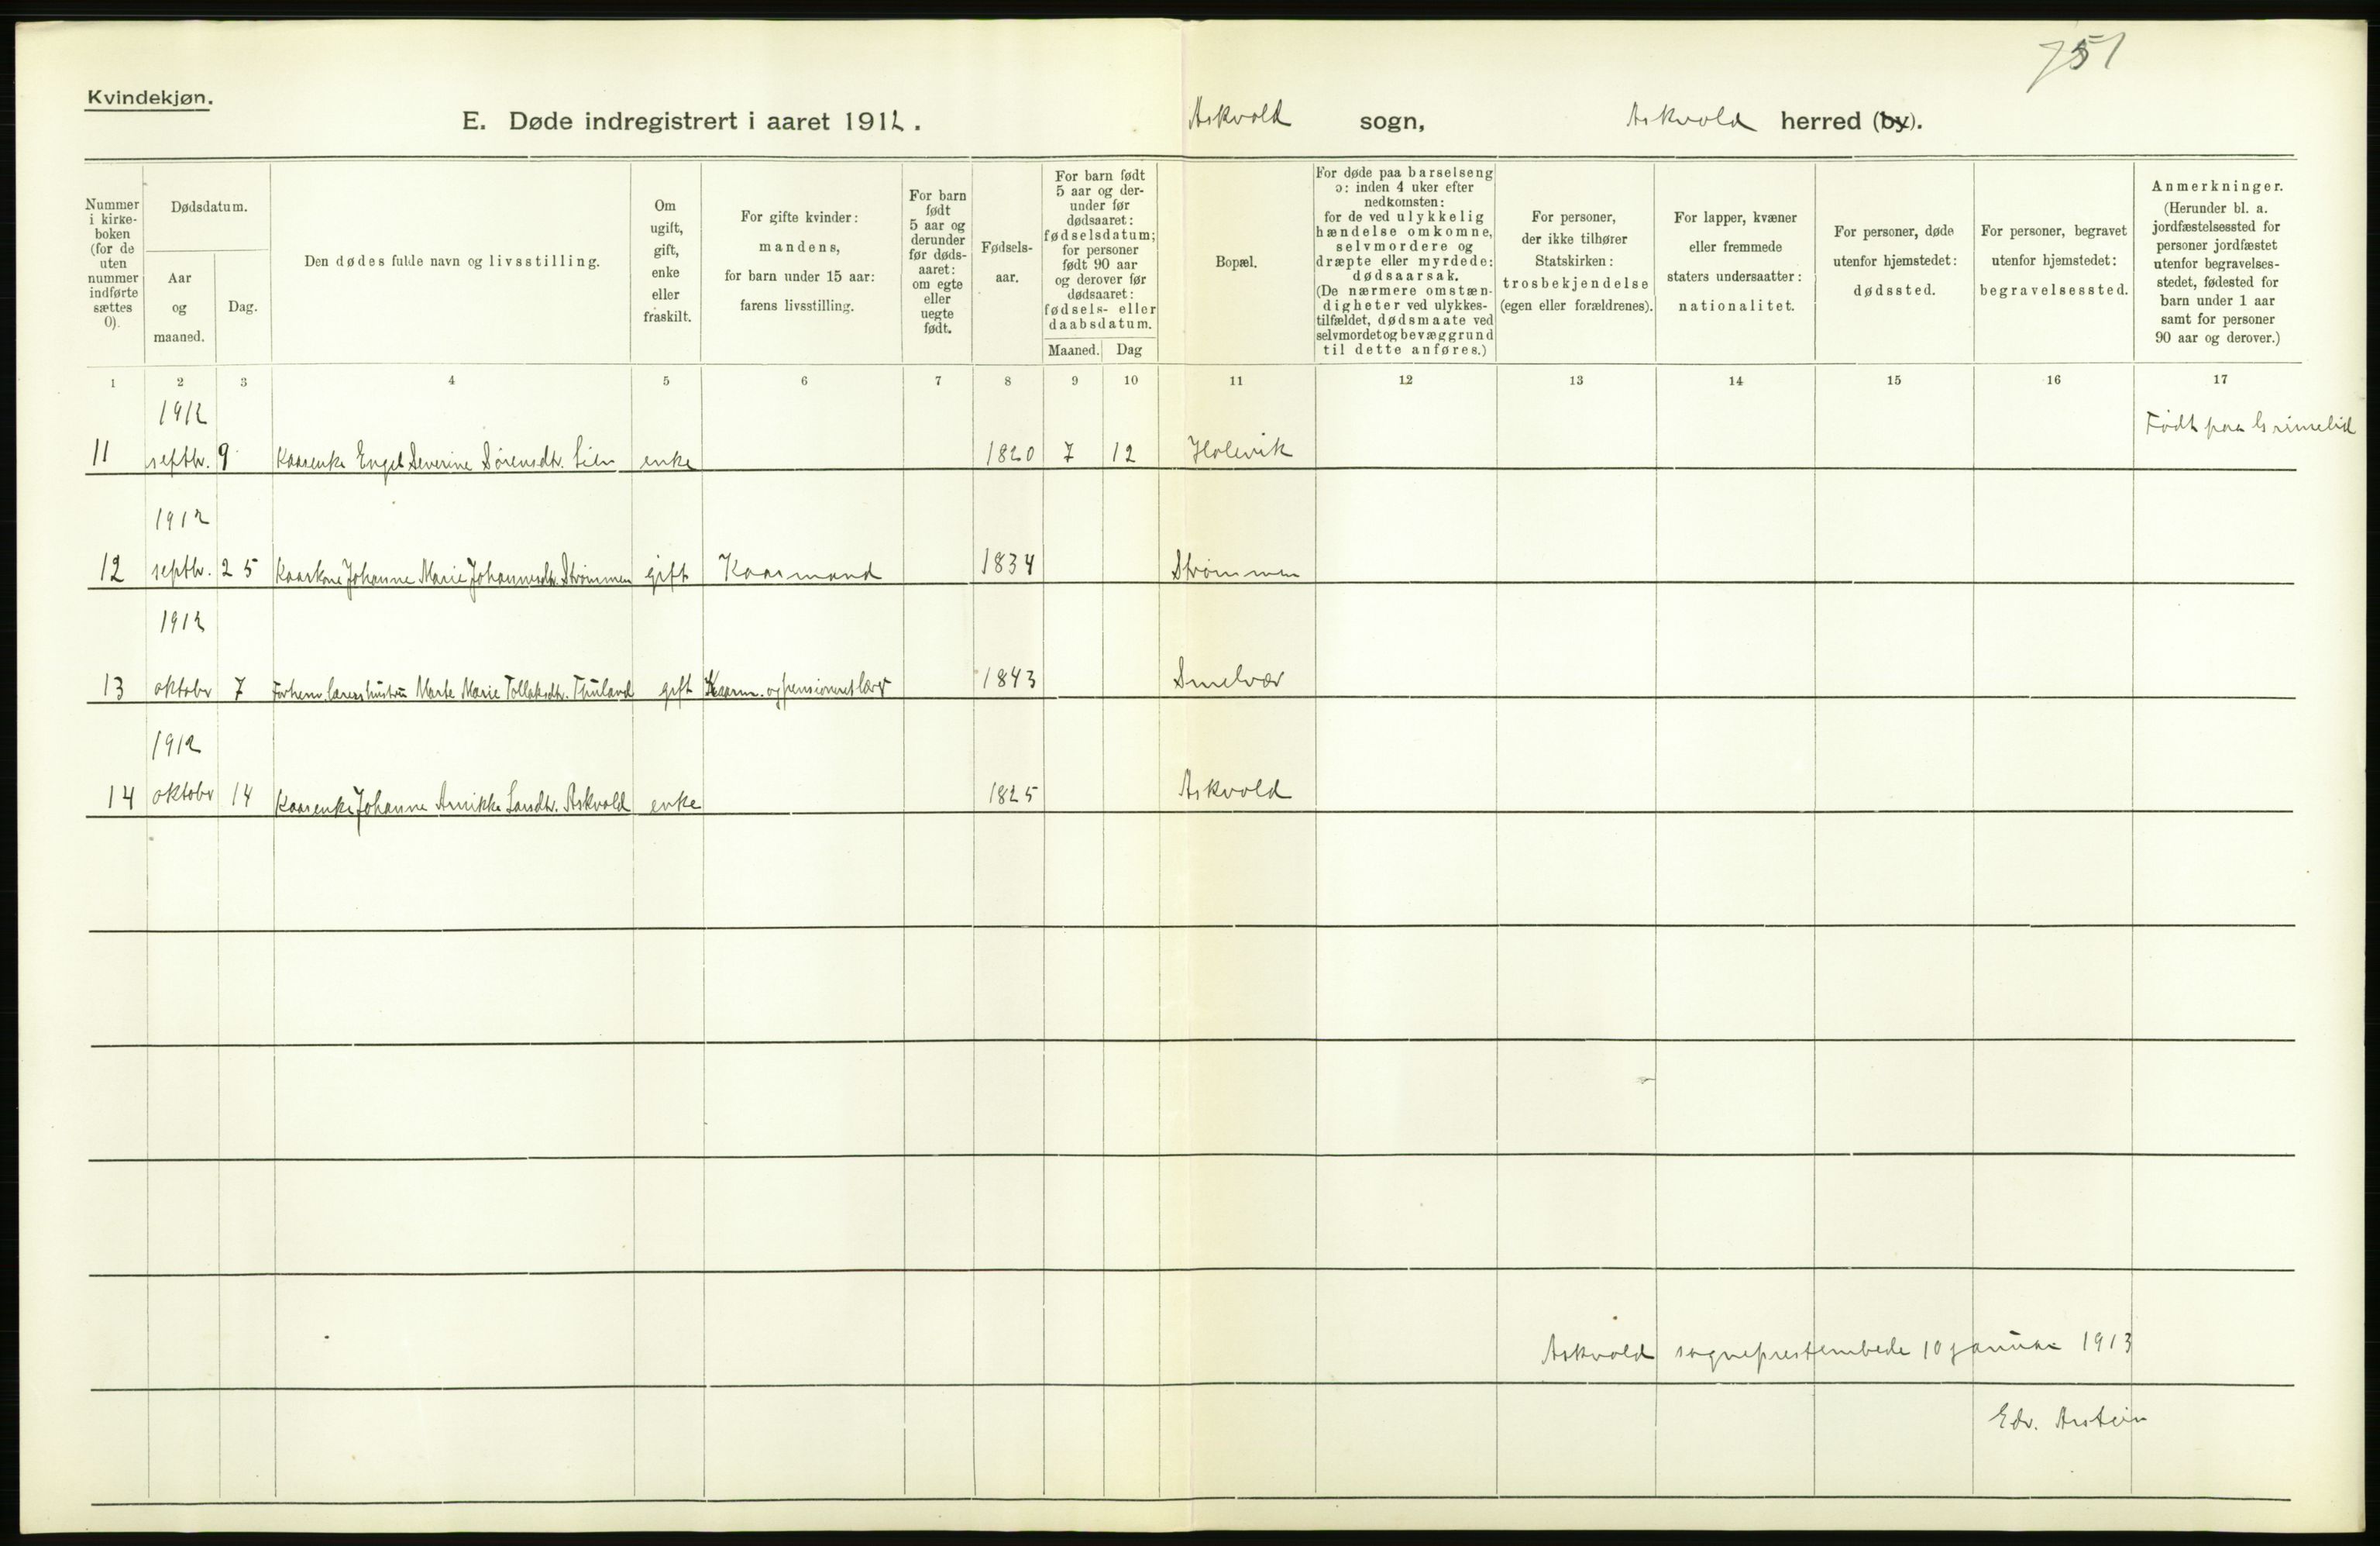 751
Kvindekjøn.
E. Døde indregistrert i aaret 1912. Askvold sogn, Askvold herred (by).
Nummer i kirke-boken (for de uten nummer indførte sættes 0).
Dødsdatum.
Aar og maaned.
Dag.
Den dødes fulde navn og livsstilling.
Om ugift, gift, enke eller fraskilt.
For gifte kvinder: mandens, for barn under 15 aar: farens livsstilling.
For barn født 5 aar og derunder før døds-aaret: om egte eller uegte født.
Fødsels-aar.
For barn født 5 aar og der-under før dødsaaret: fødselsdatum; for personer født 90 aar og derover før dødsaaret: fødsels- eller daabsdatum.
Maaned. Dag
Bopæl.
For døde paa barselseng ɔ: inden 4 uker efter nedkomsten: for de ved ulykkelig hændelse omkomne, selvmordere og dræpte eller myrdede: dødsaarsak. (De nærmere omstæn-digheter ved ulykkes-tilfældet, dødsmaate ved selvmordet og bevæggrund til dette anføres.)
For personer, der ikke tilhører Statskirken: trosbekjendelse (egen eller forældrenes).
For lapper, kvæner eller fremmede staters undersaatter: nationalitet.
For personer, døde utenfor hjemstedet: dødssted.
For personer, begravet utenfor hjemstedet: begravelsessted.
Anmerkninger. (Herunder bl. a. jordfæstelsessted for personer jordfæstet utenfor begravelses-stedet, fødested for barn under 1 aar samt for personer 90 aar og derover.)
1 2 3 4 5 6 7 8 9 10 11 12 13 14 15 16 17
1912
Født paa Grimelid
11 septbr. 9 Kaarenke Engel Severine Sørensdtr. Lien enke 1820 7 12 Holevik
1912
12 septbr. 25 Kaarkone Johanne Marie Johannesdtr. Strømmen gift Kaarmand 1834 Strømmen
1912
13 oktober 7 Forhenv. lærershustru Marte Marie Tollaksdtr. Thuland gift Kaarm. og pensioneret lærer 1843 Smelvær
1912
14 oktober 14 Kaarenke Johanne Annikke Larsdtr. Askvold enke 1825 Askvold
Askvold sogneprestembede 10 januar 1913
Edv. Arstein